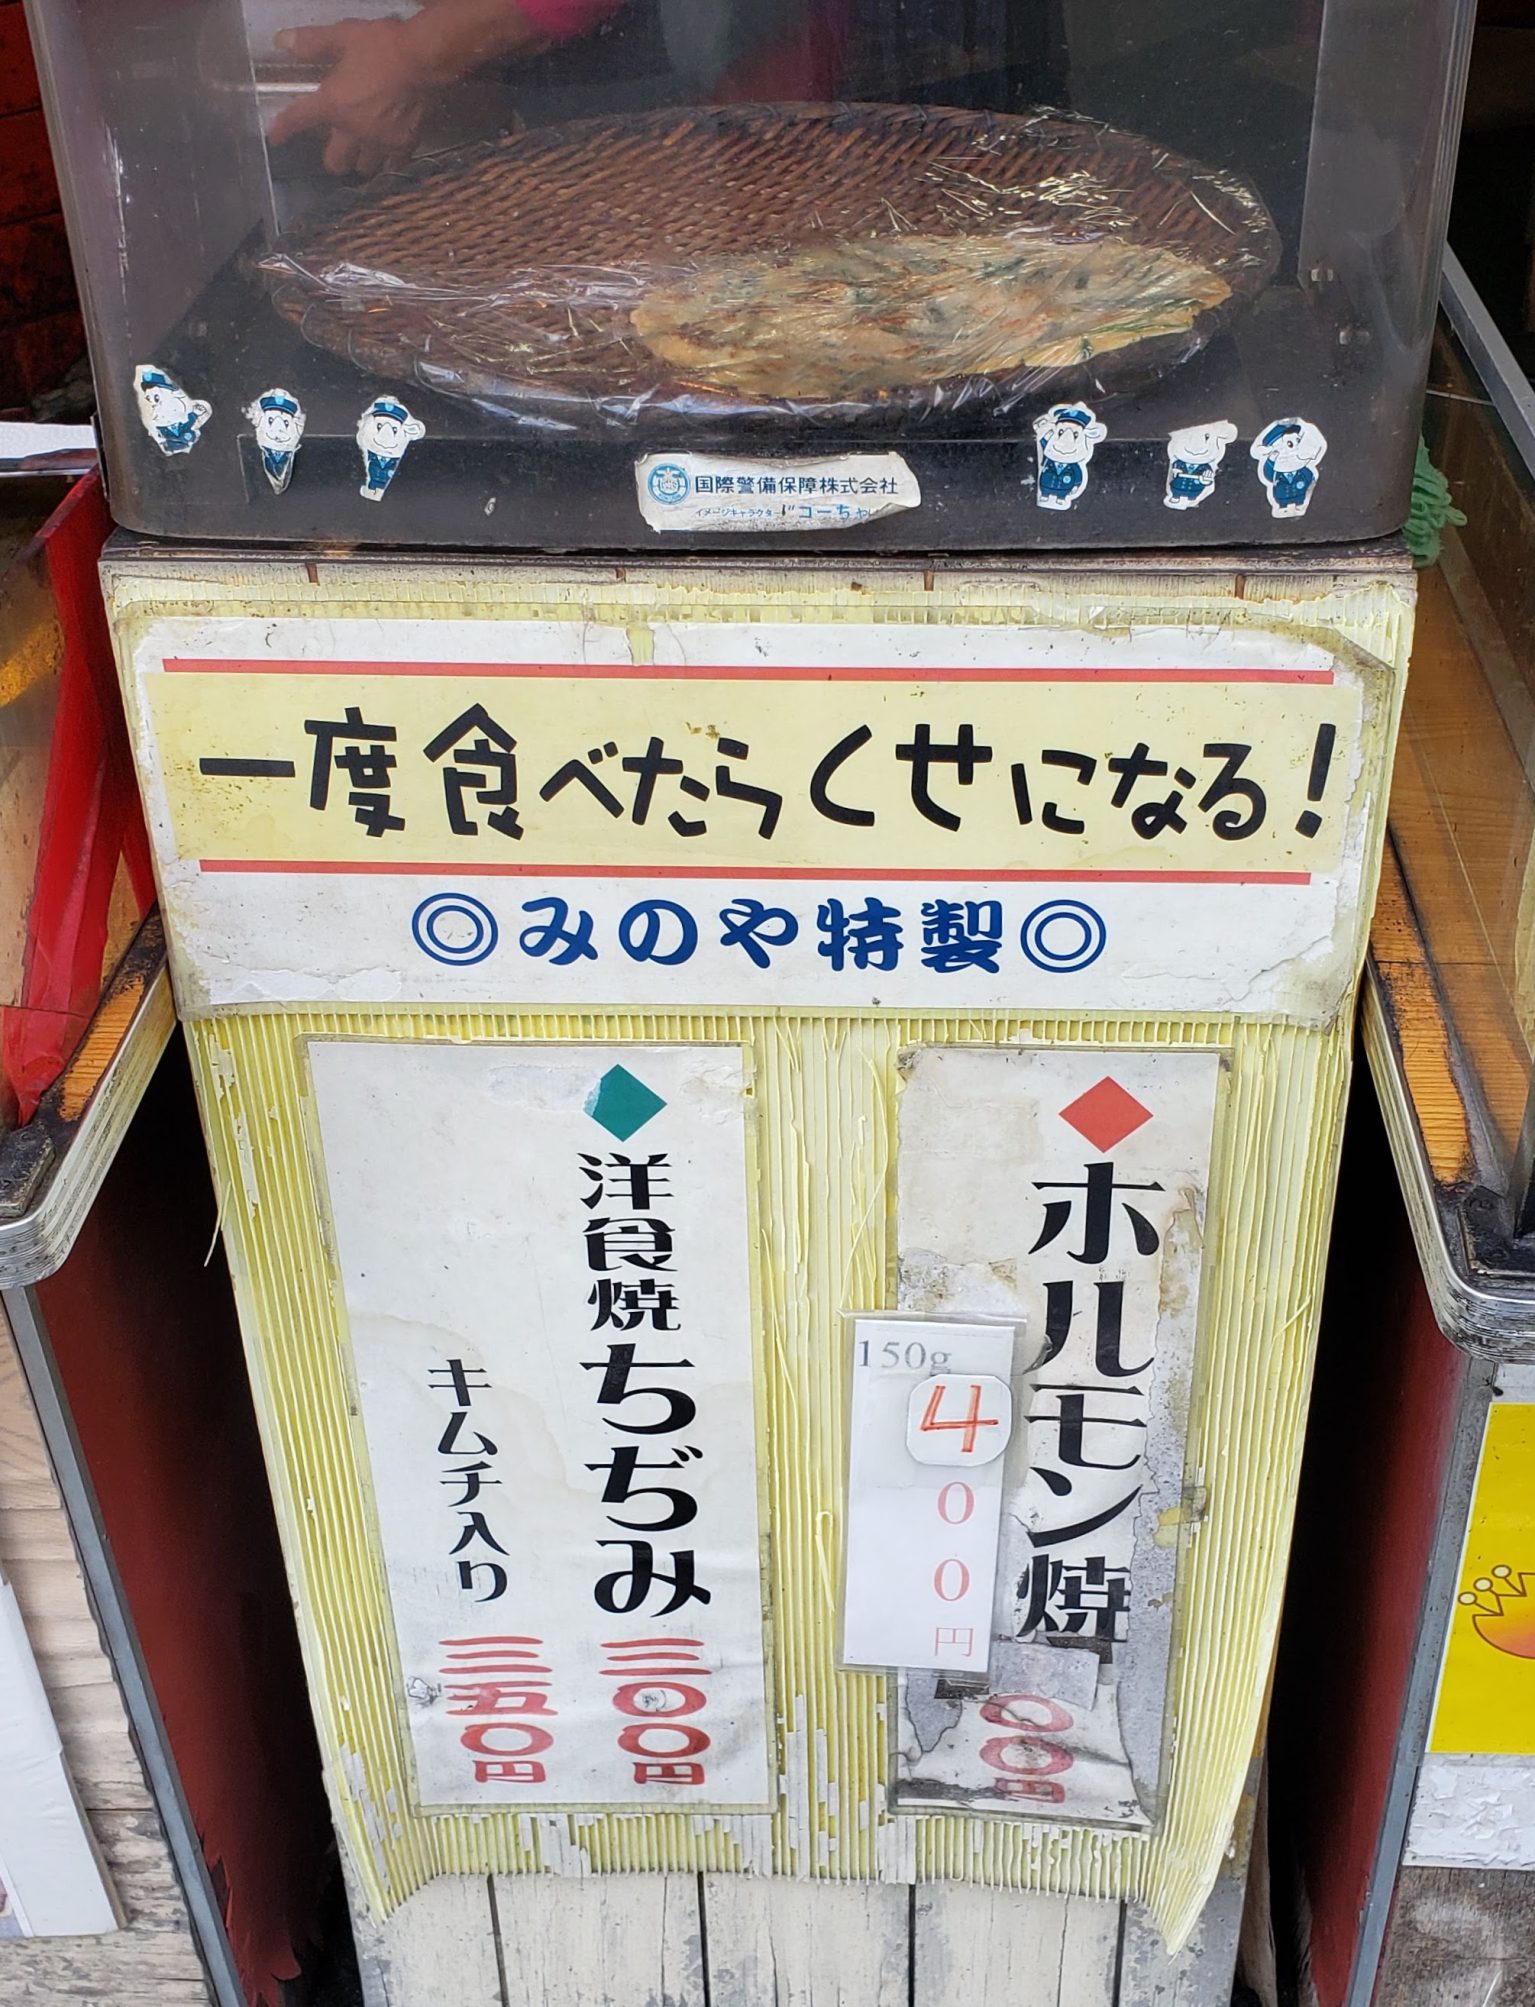 国際警備保障株式会社
イメージキャラクター"コーちゃ
一度食べたらくせになる!
◎みのや特製◎
ホルモン焼
150g
400円
00円
洋食焼ちぢみ 三〇〇円
キムチ入り 三五〇円